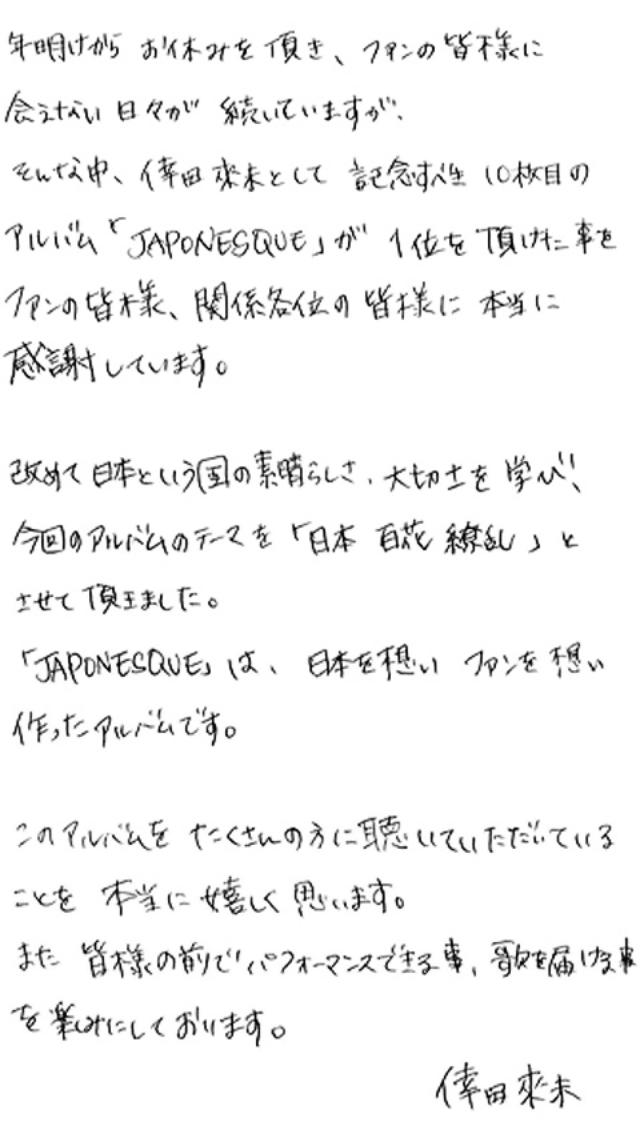 年明けから お休みを 頂き、ファンの 皆様に
会えない 日々が 続いていますが、
そんな中、倖田來未として 記念すべき 10枚目の
アルバム「JAPONESQUE」が 1位を 頂けた事を
ファンの皆様、関係各位の 皆様に 本当に
感謝しています。
改めて 日本という国の素晴らしさ、大切さを 学び、
今回のアルバムのテーマを「日本 百花 繚乱」と
させて 頂きました。
「JAPONESQUE」は、日本を想い ファンを想い
作ったアルバムです。
このアルバムを たくさんの方に聴いていただいている
ことを 本当に 嬉しく 思います。
また 皆様の前で パフォーマンスできる事、歌を届ける事
を楽しみにしております。
倖田來未